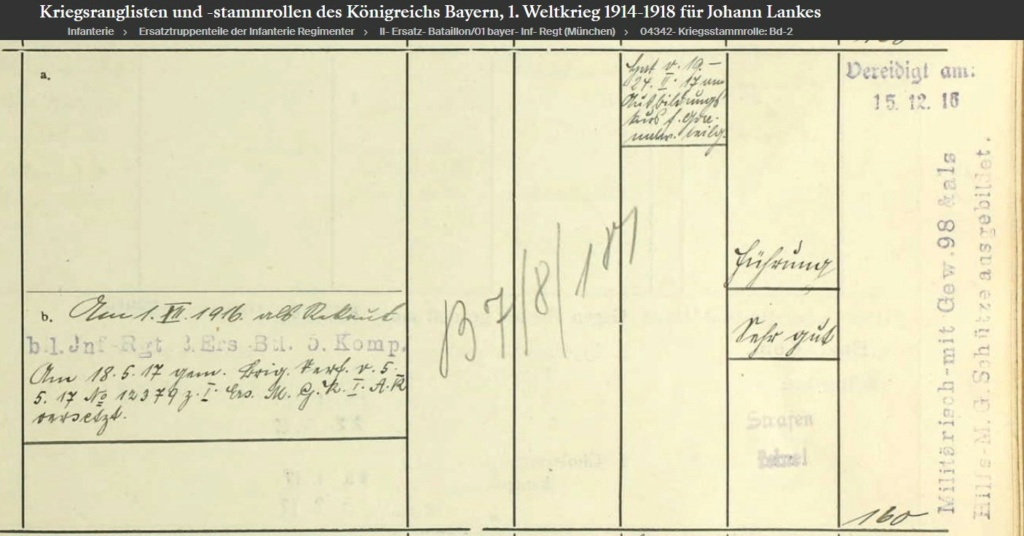 Kriegsranglisten und -stammrollen des Königreichs Bayern, 1. Weltkrieg 1914-1918 für Johann Lankes
Infanterie › Ersatztruppenteile der Infanterie Regimenter › II- Ersatz- Bataillon/01 bayer- Inf- Regt (München) › 04342- Kriegsstammrolle: Bd-2
a.
b. Am 1. XII. 1916 als Rekrut
b.1. Inf-Rgt 3. Ers-Btl. 5. Komp.
Am 18.5.17 gem. Brig. Verf. v. 5.
5.17 № 12379 z. I. Ers. M.G.K. I. A.K.
versetzt.
Hat v. 19.–
24. II. 17 am
Ausbildungs
kurs f.
teilg.
Führung
Sehr gut
Strafen
Vereidigt am:
15. 12. 16
Militärisch mit Gew. 98 & als
Hilfs-M.G. Schütze ausgebildet.
160